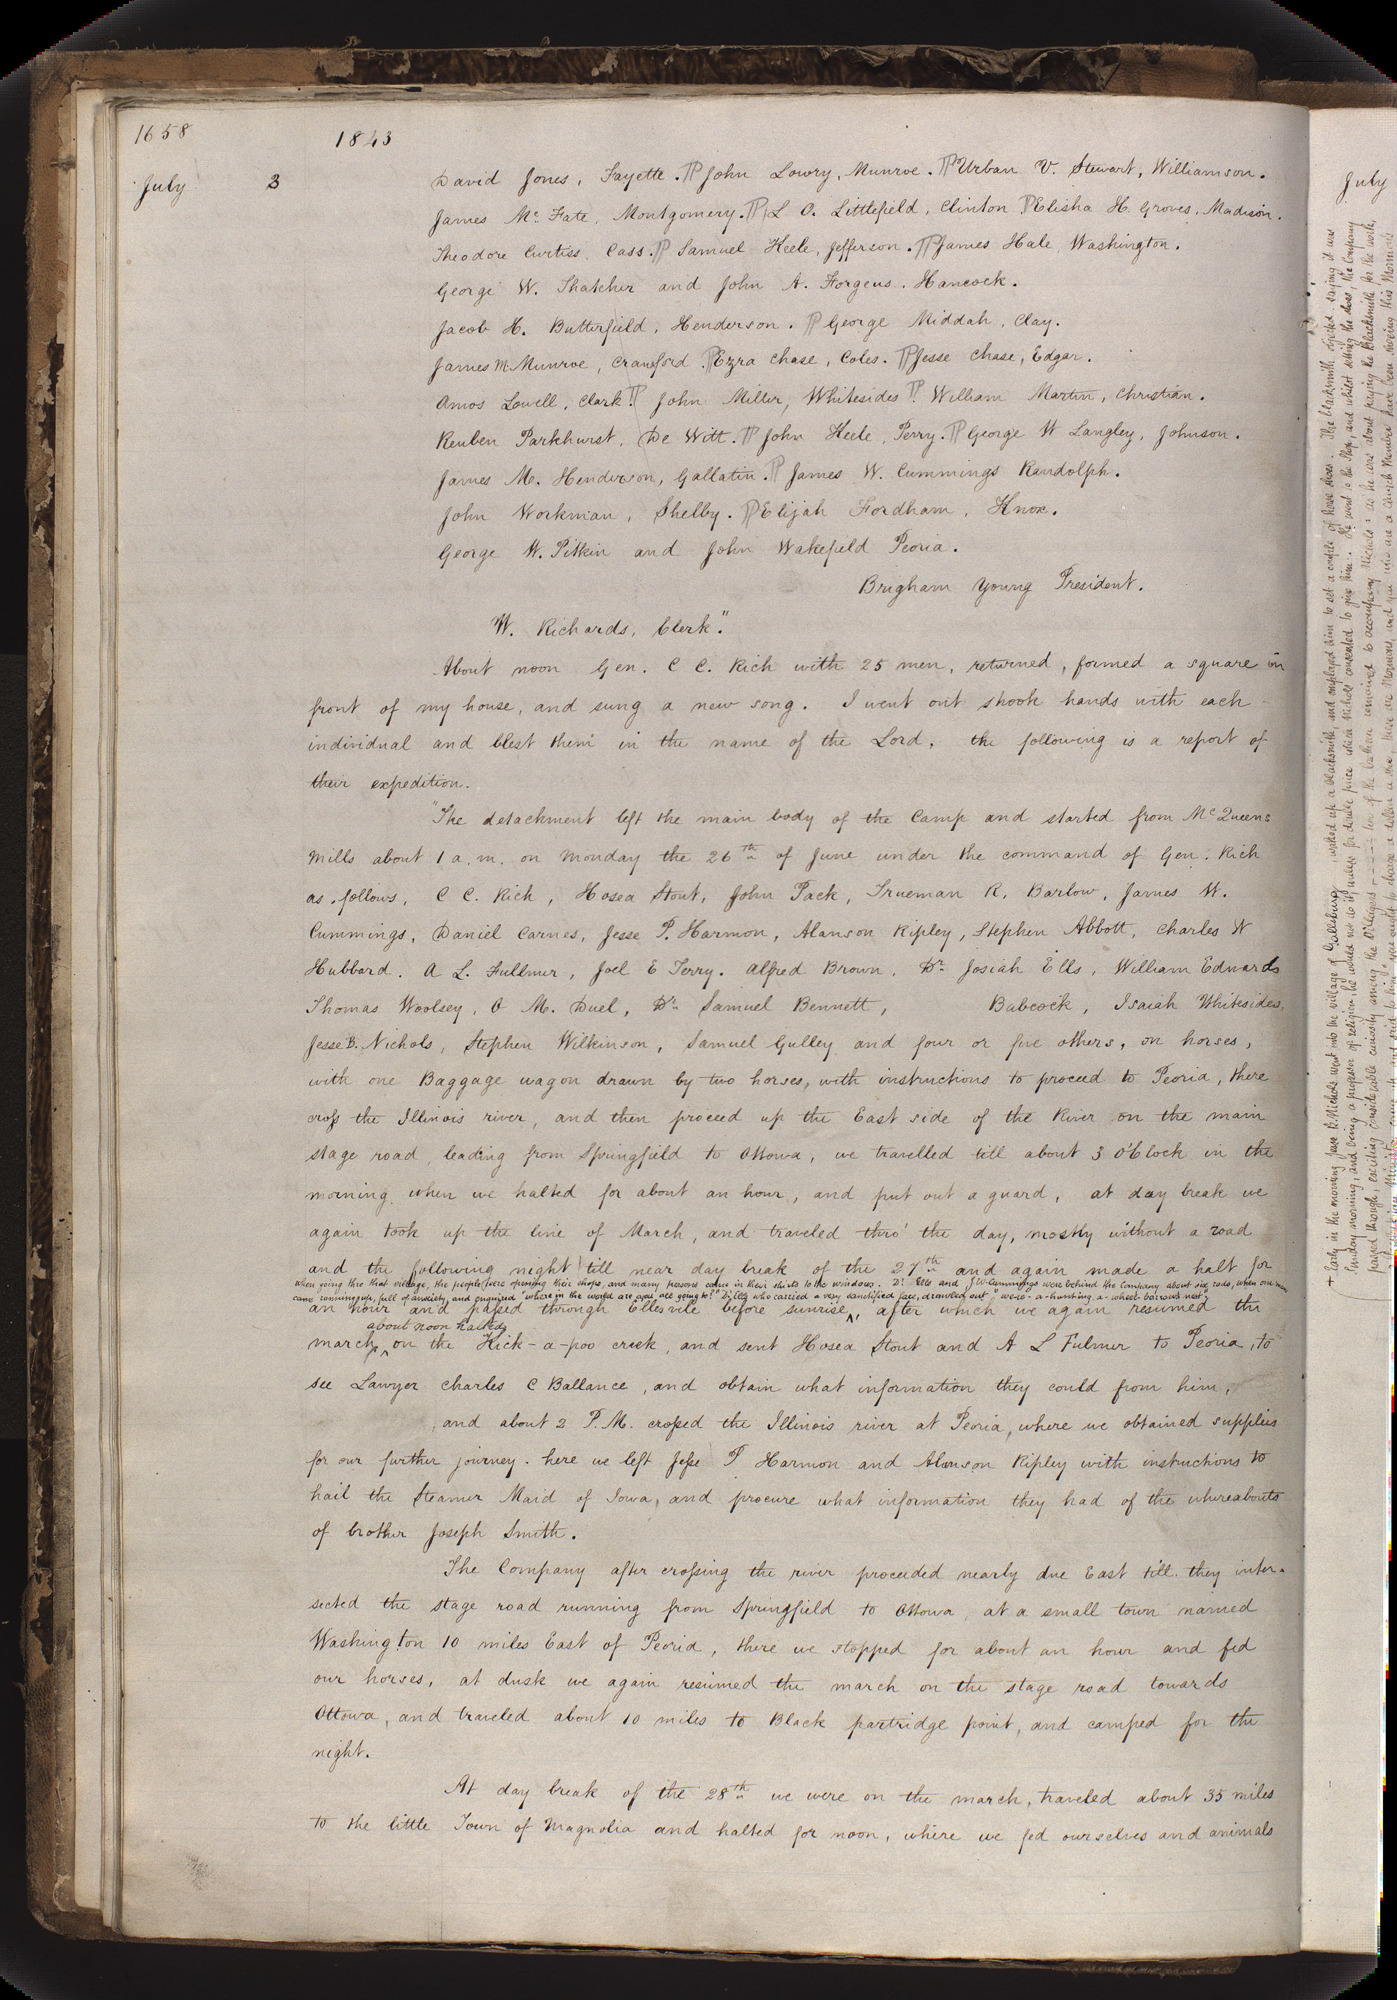 1658
1843
July 3
David Jones, Fayette. ¶ John Lowry, Munroe. ¶ Urban V. Stewart, Williamson.
James Mc. Fate, Montgomery. ¶ L O. Littlefield, Clinton ¶ Elisha H. Groves, Madison.
Theodore Curtiss, Cass. ¶ Samuel Heele, Jefferson. ¶ James Hale, Washington.
George W. Thatcher and John A. Forgeus, Hancock.
Jacob H. Butterfield, Henderson. ¶ George Middah, Clay.
James M. Munroe, Crawford. ¶ Ezra Chase, Coles. ¶ Jesse Chase, Edgar.
Amos Lowell, Clark. ¶ John Miller, Whitesides. ¶ William Martin, Christian.
Reuben Parkhurst, De Witt. ¶ John Heele, Perry. ¶ George W Langley, Johnson.
James M. Henderson, Gallatin. ¶ James W. Cummings Randolph.
John Workman, Shelby. ¶ Elijah Fordham, Knox.
George W. Pitkin and John Wakefield Peoria.
Brigham Young President.
W. Richards, Clerk."
About noon Gen. C C. Rich with 25 men, returned, formed a square in
front of my house, and sung a new song. I went out shook hands with each
individual and blest them in the name of the Lord. the following is a report of
their expedition.
"The detachment left the main body of the Camp and started from McQueens
Mills about 1 a.m. on Monday the 26th of June under the command of Gen. Rich
as follows, C C. Rich, Hosea Stout, John Pack, Trueman R. Barlow, James W.
Cummings, Daniel Carnes, Jesse P. Harmon, Alanson Ripley, Stephen Abbott, Charles W
Hubbard. A L. Fullmer, Joel E Terry. Alfred Brown, Dr. Josiah Ells, William Edwards
Thomas Woolsey, O M. Duel, Dr. Samuel Bennett, Babcock, Isaiah Whitesides,
Jesse B. Nichols, Stephen Wilkinson, Samuel Gulley and four or five others, on horses,
with one Baggage wagon drawn by two horses, with instructions to proceed to Peoria, there
cross the Illinois river, and then proceed up the East side of the River on the main
stage road, leading from Springfield to Ottowa, we travelled till about 3 O'Clock in the
morning, when we halted for about an hour, and put out a guard, at day break we
again took up the line of March, and traveled thro' the day, mostly without a road
and the following night till near day break of the 27th and again made a halt for
when going thro that village, the people were opening their shops, and many persons came in their shirts to the windows. Dr. Ells and J W Cummings were behind the Company about six rods, when one man
came running up, full of anxiety, and enquired "where in the world are you all going to?" Dr Ells who carried a very sanctified face, drawled out "were-a-hunting a-wheel-barrows nest",
an hour and passed through Ellesvile before sunrise, ^ after which we again resumed the
about noon halted
march, ^ on the Kick-a-poo creek, and sent Hosea Stout and A L Fulmer to Peoria, to
see Lawyer Charles C Ballance, and obtain what information they could from him,
and about 2 P.M. crossed the Illinois river at Peoria, where we obtained supplies
for our further journey. here we left Jesse P Harmon and Alanson Ripley with instructions to
hail the Steamer Maid of Iowa, and procure what information they had of the whereabouts
of brother Joseph Smith.
The Company after crossing the river proceeded nearly due East till they inter-
sected the stage road running from Springfield to Ottowa, at a small town named
Washington 10 miles East of Peoria, there we stopped for about an hour and fed
our horses, at dusk we again resumed the march on the stage road towards
Ottowa, and traveled about 10 miles to Black partridge point, and camped for the
night.
At day break of the 28th we were on the march, traveled about 35 miles
to the little Town of Magnolia and halted for noon, where we fed ourselves and animals
July
+ Early in the morning Jesse B. Nichols went into the village of Galesburg, waked up a blacksmith, and employed him to set a couple of horse shoes. The blacksmith objected, saying it was
Sunday morning, and being a professor of religion, he would not do it, unless for double price which Nichols consented to give him. He went to the Shop, and whilst setting the shoes, the Company
passed through, exciting considerable curiosity among the Villagers